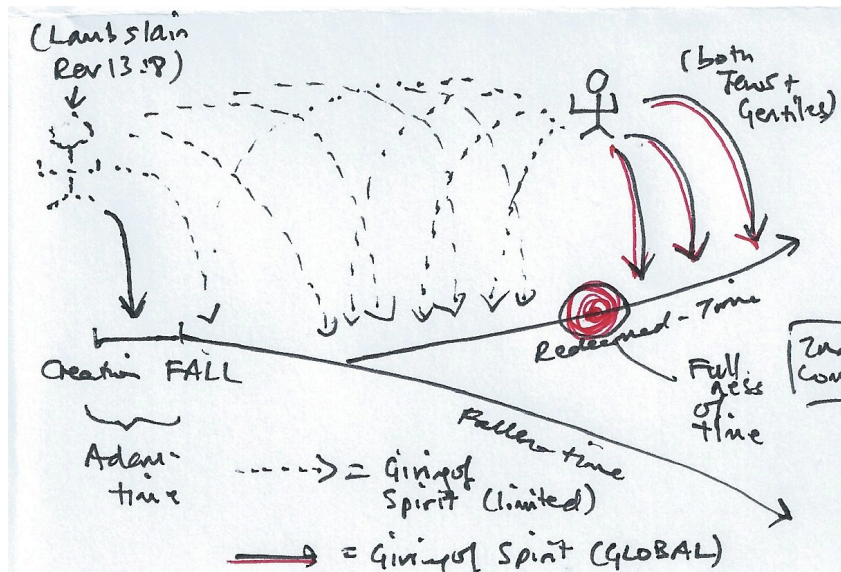 (Lamb slain
Rev 13:8)
(both
Jews +
Gentiles)
Creation FALL
Redeemed-Time
Full
ness
of
time
Adam-
time
Fallen-time
= Giving of
Spirit (limited)
= Giving of Spirit (GLOBAL)